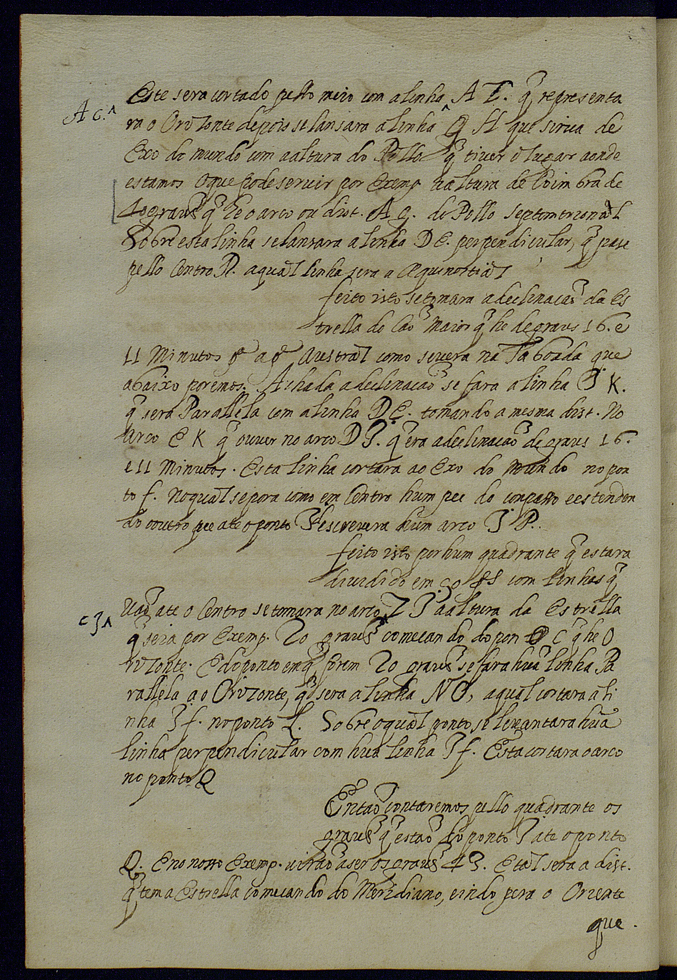 Este sera cortado pello meio com a linha A C. q̃ representa
A c.^
ra o Orozonte depois se lansara a linha Q H que sirua de
Exo do mundo com a altura do Pollo q̃ tiver o lugar aonde
estamos o que pode seruir por Exemp. na altura de Coimbra de
40 graus q̃ he o arco ou dist. A g. do Pollo septemtrional
Sobre esta linha se lansara a linha D E. perpendicular, q̃ pase
pello Centro R. a qual linha sera a Æquinoctial
feito isto se tomara a declinacaõ da Es
trella do Caõ maior q̃ he de graus 16. e
11 Minutos p.ᵃ a p.ᵉ Austral como se uera na Taboada que
abaixo poremos. Achada a declinacaõ se fara a linha J K.
q̃ sera Parallela com a linha D E. tomando a mesma dist. No
Arco E K q̃ ouuer no arco D J. q̃ era a declinacaõ de graus 16.
e 11 Minutos. Esta linha cortara ao Exo do mundo no pon
to f. no qual se pora como em Centro hum pee do compasso e estenden
do o outro pee ate o ponto J descreuera hum arco J P.
feito isto por hum quadrante q̃ estara
diuidido em 90 gs com linhas q̃
Uaõ ate o Centro se tomara no arco Z J a altura da Estrella
c 3 ^
q̃ seia por Exemp. 20 graus comecando do pon C q̃ he O
rozonte. E do ponto em q̃ forem 20 graus se fara hũa linha Pa
rallela ao Orozonte, q̃ sera a linha N O, a qual cortara a li
nha J f. no ponto L. Sobre o qual ponto, se leuantara hũa
linha perpendicular com hũa linha J f. Esta cortara o arco
no ponto Q
Entaõ contaremos pello quadrante os
graus q̃ estaõ do ponto J ate o ponto
Q. E no nosso Exemp. uiraõ a ser os graus 43. E tal sera a dist.
q̃ tem a Estrella comecando do Meridiano, e indo pera o Oriente
que.